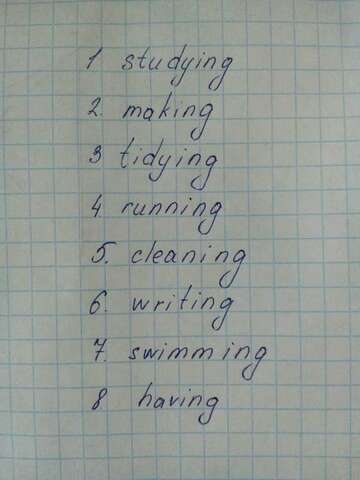 1 studying
2. making
3 tidying
4 running
5. cleaning
6. writing
7. swimming
8 having